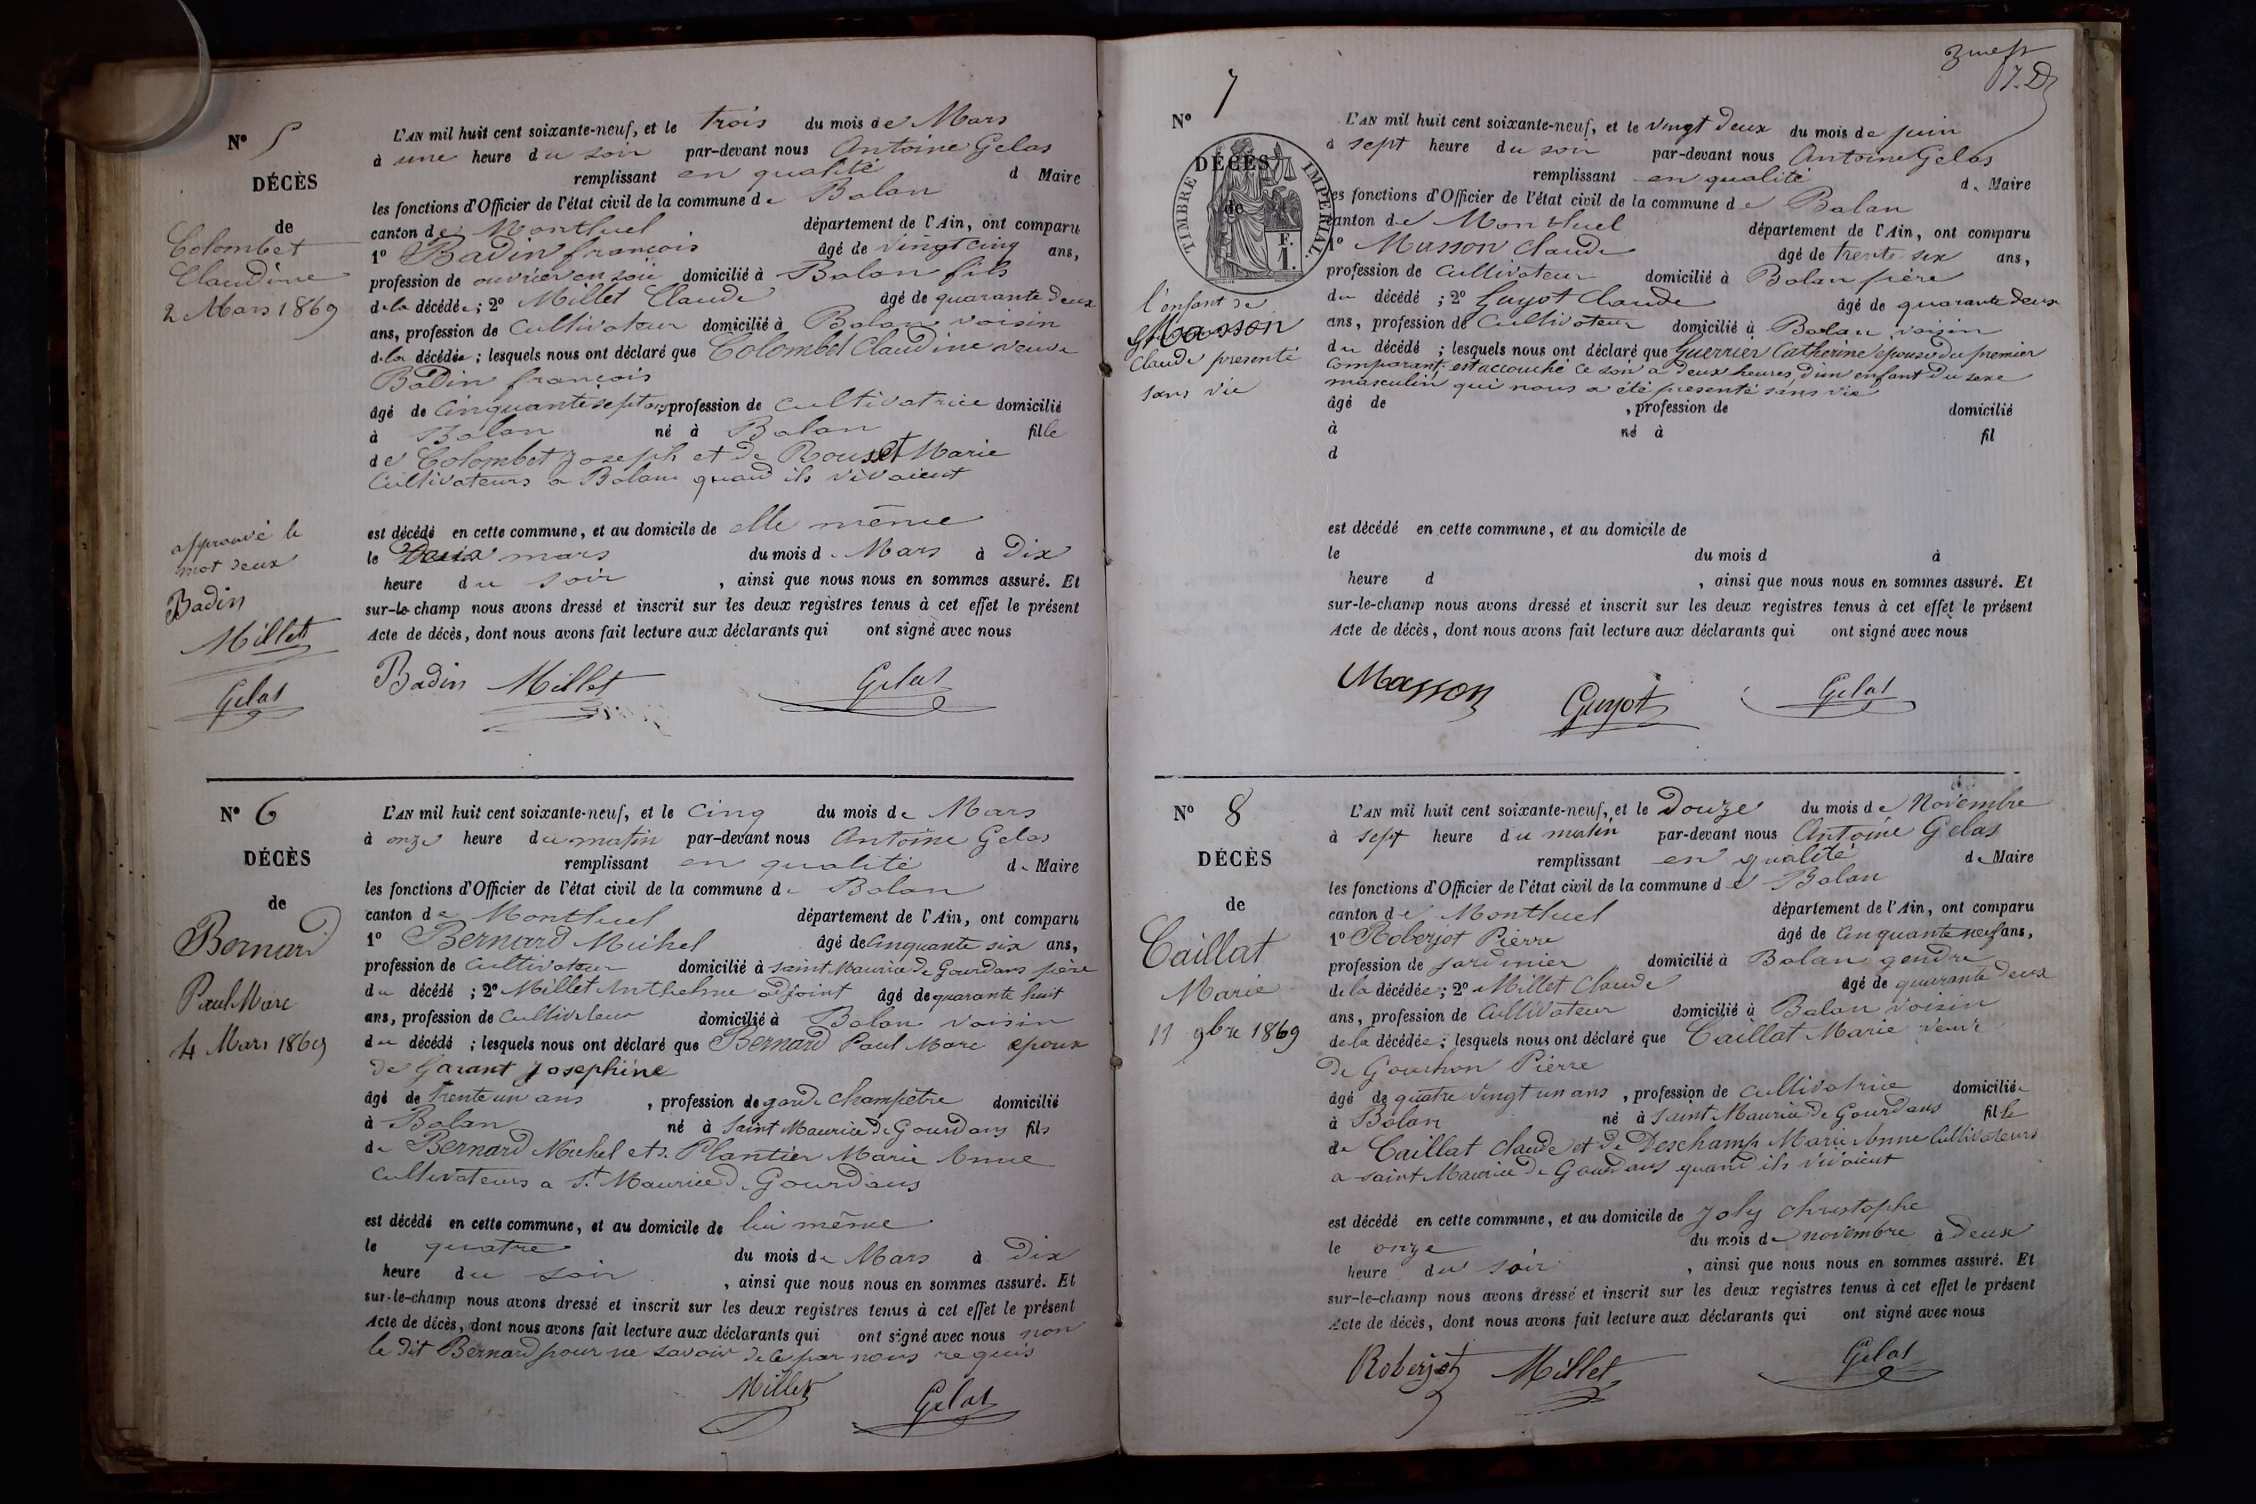 N° 5
DÉCÈS
de
Colombet
Claudine
2 Mars 1869
L'AN mil huit cent soixante-neuf, et le trois du mois de Mars
à une heure du soir par-devant nous Antoine Gelas
remplissant en qualité d Maire
les fonctions d'Officier de l'état civil de la commune de Balan
canton de Montluel département de l'Ain, ont comparu
1° Badin françois âgé de vingt cinq ans,
profession de ouvrier en soie domicilié à Balan fils
de la décédée ; 2° Millet Claude âgé de quarante deux
ans, profession de Cultivateur domicilié à Balan voisin
de la décédée ; lesquels nous ont déclaré que Colombet Claudine veuve
Badin françois
âgé de Cinquante sept ans, profession de cultivatrice domicilié
à Balan né à Balan fille
de Colombet Joseph et de Rousset Marie
Cultivateurs a Balan quand ils vivaient
est décédé en cette commune, et au domicile de elle même
le Deux mars du mois de Mars à Dix
heure du soir , ainsi que nous nous en sommes assuré. Et
sur-le-champ nous avons dressé et inscrit sur les deux registres tenus à cet effet le présent
Acte de décès, dont nous avons fait lecture aux déclarants qui ont signé avec nous
approuvé le
mot deux
Badin
Millet
Gelas
Badin Millet Gelas
N° 6
DÉCÈS
de
Bernard
Paul Marc
4 Mars 1869
L'AN mil huit cent soixante-neuf, et le Cinq du mois de Mars
à onze heure du matin par-devant nous Antoine Gelas
remplissant en qualité de Maire
les fonctions d'Officier de l'état civil de la commune de Balan
canton de Montluel département de l'Ain, ont comparu
1° Bernard Michel âgé de Cinquante six ans,
profession de Cultivateur domicilié à saint Maurice de Gourdans père
du décédé ; 2° Millet Anthelme adjoint âgé de quarante huit
ans, profession de Cultivateur domicilié à Balan voisin
du décédé ; lesquels nous ont déclaré que Bernard Paul Marc epoux
de Garant Josephine
âgé de trente un ans , profession de garde champêtre domicilié
à Balan né à Saint Maurice de Gourdans fils
de Bernard Michel et de Plantier Marie Anne
Cultivateurs a St Maurice de Gourdans
est décédé en cette commune, et au domicile de lui même
le quatre du mois de Mars à Dix
heure du soir , ainsi que nous nous en sommes assuré. Et
sur-le-champ nous avons dressé et inscrit sur les deux registres tenus à cet effet le présent
Acte de décès, dont nous avons fait lecture aux déclarants qui ont signé avec nous non
le dit Bernard pour ne savoir de ce par nous requis
Millet Gelas
N° 7
DÉCÈS
de
TIMBRE IMPÉRIAL
F.
1.
l'enfant de
Masson
Claude presenté
sans vie
L'AN mil huit cent soixante-neuf, et le vingt deux du mois de juin
à sept heure du soir par-devant nous Antoine Gelas
remplissant en qualité de Maire
les fonctions d'Officier de l'état civil de la commune de Balan
canton de Montluel département de l'Ain, ont comparu
1° Masson Claude âgé de trente six ans,
profession de Cultivateur domicilié à Balan père
du décédé ; 2° Guyot Claude âgé de quarante deux
ans, profession de Cultivateur domicilié à Balan voisin
du décédé ; lesquels nous ont déclaré que Guerrier Catherine épouse du premier
comparant est accouché ce soir a deux heures d'un enfant du sexe
masculin qui nous a été presenté sans vie
âgé de , profession de domicilié
à né à fil
d
est décédé en cette commune, et au domicile de
le du mois d à
heure d , ainsi que nous nous en sommes assuré. Et
sur-le-champ nous avons dressé et inscrit sur les deux registres tenus à cet effet le présent
Acte de décès, dont nous avons fait lecture aux déclarants qui ont signé avec nous
Masson Guyot Gelas
N° 8
DÉCÈS
de
Caillat
Marie
11 9bre 1869
L'AN mil huit cent soixante-neuf, et le Douze du mois de Novembre
à sept heure du matin par-devant nous Antoine Gelas
remplissant en qualité de Maire
les fonctions d'Officier de l'état civil de la commune de Balan
canton de Montluel département de l'Ain, ont comparu
1° Roberjot Pierre âgé de Cinquante neuf ans,
profession de jardinier domicilié à Balan gendre
de la décédée ; 2° Millet Claude âgé de quarante deux
ans, profession de Cultivateur domicilié à Balan voisin
de la décédée ; lesquels nous ont déclaré que Caillat Marie veuve
de Gouchon Pierre
âgé de quatre vingt un ans , profession de cultivatrice domiciliée
à Balan né à Saint Maurice de Gourdans fille
de Caillat Claude et de Deschamp Marie Anne Cultivateurs
a saint Maurice de Gourdans quand ils vivaient
est décédé en cette commune, et au domicile de Joly Christophe
le onze du mois de novembre à Deux
heure du soir , ainsi que nous nous en sommes assuré. Et
sur-le-champ nous avons dressé et inscrit sur les deux registres tenus à cet effet le présent
Acte de décès, dont nous avons fait lecture aux déclarants qui ont signé avec nous
Roberjot Millet Gelas